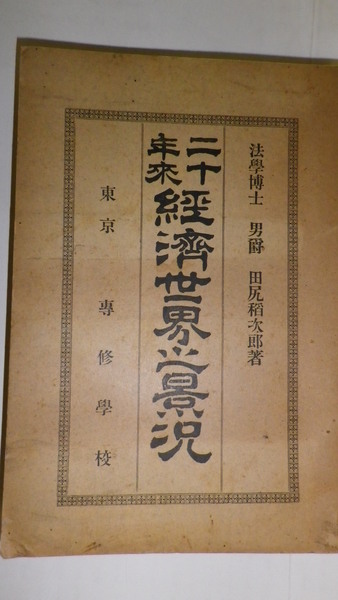 法學博士 男爵 田尻稻次郎著
二十年來經濟世界之景況
東京 專修學校